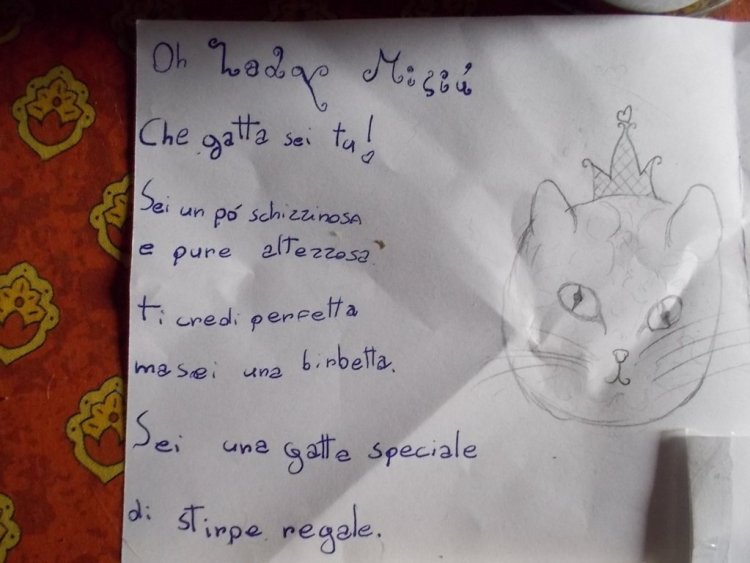 Oh Lady Misiú
Che gatta sei tu!
Sei un pó schizzinosa
e pure altezzosa.
ti credi perfetta
ma sei una birbetta.
Sei una gatte speciale
di stirpe regale.